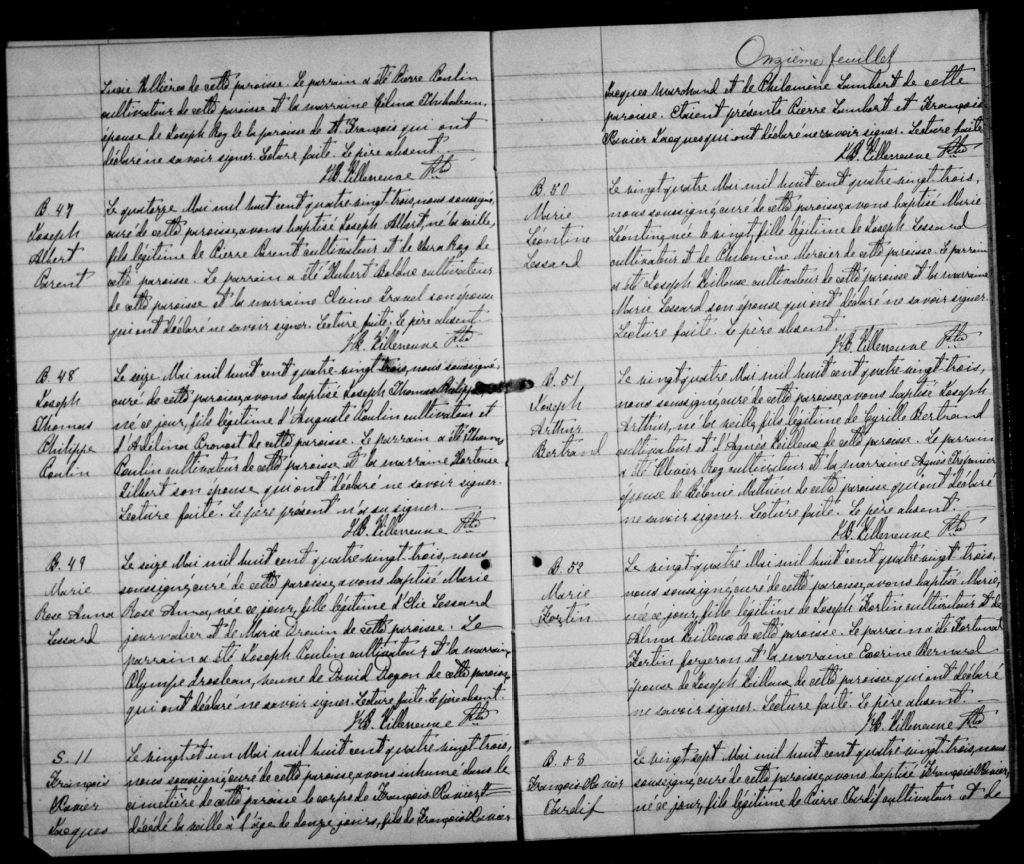 Lucie Vallières de cette paroisse. Le parrain a été Pierre Poulin
cultivateur de cette paroisse et la marraine Célina Thibodeau,
épouse de Joseph Roy de la paroisse de St François qui ont
déclaré ne savoir signer. Lecture faite. Le père absent.
J.B. Villeneuve Ptre
B. 47
Joseph
Albert
Parent
Le quatorze Mai mil huit cent quatre vingt trois, nous soussigné,
curé de cette paroisse, avons baptisé Joseph Albert, né la veille,
fils légitime de Pierre Parent cultivateur et de Roy de
cette paroisse. Le parrain a été Hubert Bolduc cultivateur
de cette paroisse et la marraine son épouse
qui ont déclaré ne savoir signer. Lecture faite. Le père absent.
J.B. Villeneuve Ptre
B. 48
Joseph
Thomas
Philippe
Poulin
Le seize Mai mil huit cent quatre vingt trois, nous soussigné,
curé de cette paroisse, avons baptisé Joseph Thomas Philippe
né ce jour, fils légitime d'Auguste Poulin cultivateur et
d'Adélina Provost de cette paroisse. Le parrain a été Thomas
Poulin cultivateur de cette paroisse et la marraine Hortense
Gilbert son épouse qui ont déclaré ne savoir signer.
Lecture faite. Le père présent n'a su signer.
J.B. Villeneuve Ptre
B. 49
Marie
Rose Anna
Lessard
Le seize Mai mil huit cent quatre-vingt-trois, nous
soussigné, curé de cette paroisse, avons baptisé Marie
Rose Anna, née ce jour, fille légitime d'Elie Lessard
journalier et de Marie Drouin de cette paroisse. Le
parrain a été Joseph Poulin cultivateur et la marraine
Olympe veuve de David de cette paroisse
qui ont déclaré ne savoir signer. Lecture faite. Le père absent.
J.B. Villeneuve Ptre
S. 11
François
Xavier
Jacques
Le vingt et un Mai mil huit cent quatre vingt trois,
nous soussigné, curé de cette paroisse, avons inhumé dans le
cimetière de cette paroisse le corps de François Xavier
décédé la veille à l'âge de douze jours, fils de François Xavier
Onzième feuillet
Jacques Marchand et de Philomène Lambert de cette
paroisse. Etaient présents Pierre Lambert et François
Xavier Jacques qui ont déclaré ne savoir signer. Lecture faite
J.B. Villeneuve Ptre
B. 50
Marie
Léontine
Lessard
Le vingt quatre Mai mil huit cent quatre vingt trois,
nous soussigné, curé de cette paroisse, avons baptisé Marie
Léontine, née le vingt, fille légitime de Joseph Lessard
cultivateur et de Philomène Mercier de cette paroisse. Le parrain
a été Joseph Veilleux cultivateur de cette paroisse et la marraine
Marie Lessard son épouse qui ont déclaré ne savoir signer.
Lecture faite. Le père absent.
J.B. Villeneuve Ptre
B. 51
Joseph
Arthur
Bertrand
Le vingt quatre Mai mil huit cent quatre-vingt-trois,
nous soussigné, curé de cette paroisse, avons baptisé Joseph
Arthur, né la veille, fils légitime de Cyrille Bertrand
cultivateur et d'Agnès Veilleux de cette paroisse. Le parrain
a été Olivier Roy cultivateur et la marraine Agnès Trépanier
épouse de Bélonie Mathieu de cette paroisse qui ont déclaré
ne savoir signer. Lecture faite. Le père absent.
J.B. Villeneuve Ptre
B. 52
Marie
Fortin
Le vingt-quatre Mai mil huit cent quatre vingt trois,
nous soussigné, curé de cette paroisse, avons baptisé Marie,
née ce jour, fille légitime de Joseph Fortin cultivateur et de
Alma Veilleux de cette paroisse. Le parrain a été Fortunat
Fortin forgeron et la marraine Bernard
épouse de Joseph Veilleux de cette paroisse qui ont déclaré
ne savoir signer. Lecture faite. Le père absent.
J.B. Villeneuve Ptre
B. 53
François Xavier
Tardif
Le vingt sept Mai mil huit cent quatre vingt trois, nous
soussigné, curé de cette paroisse, avons baptisé François Xavier,
né ce jour, fils légitime de Pierre Tardif cultivateur et de